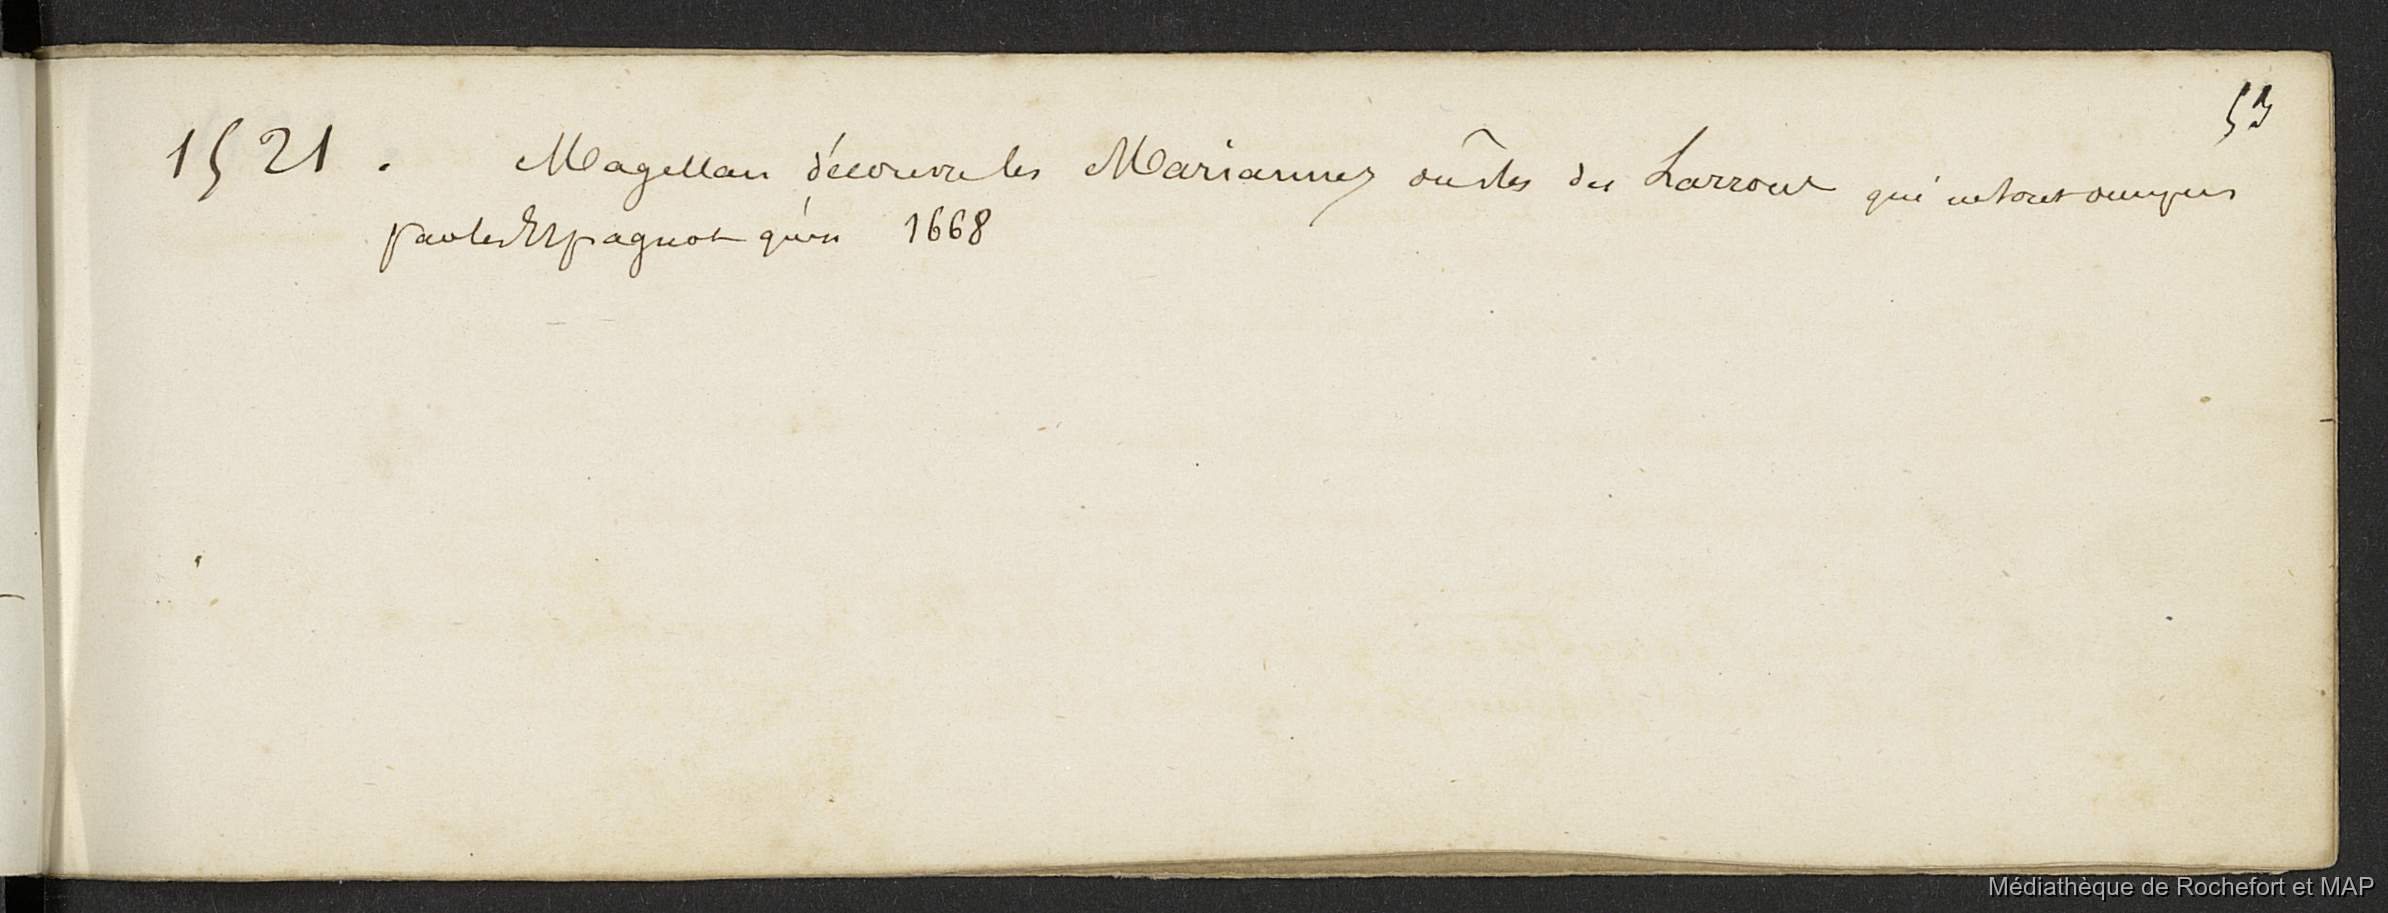 53
1521. Magellan découvre les Mariannes ou îles des Larrons qui ne sont occupées
par les Espagnols qu'en 1668
Médiathèque de Rochefort et MAP